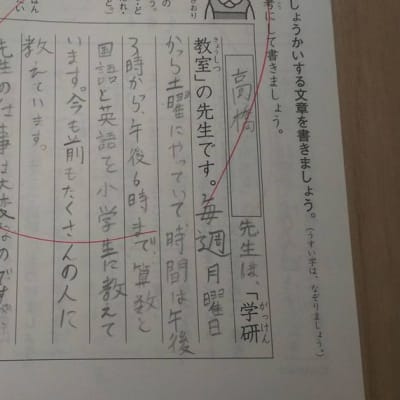 しょうかいする文章を書きましょう。
(うすい字は、なぞりましょう。)
考にして書きましょう。
高橋 先生は、「学研
がっけん
教室」の先生です。毎週月曜日
きょうしつ
から土曜にやっていて、時間は午後
3時から、午後6時まで、算数と
国語と英語を小学生に教えて
います。今も前もたくさんの人に
教えています。
先生の仕事は大変なのですが